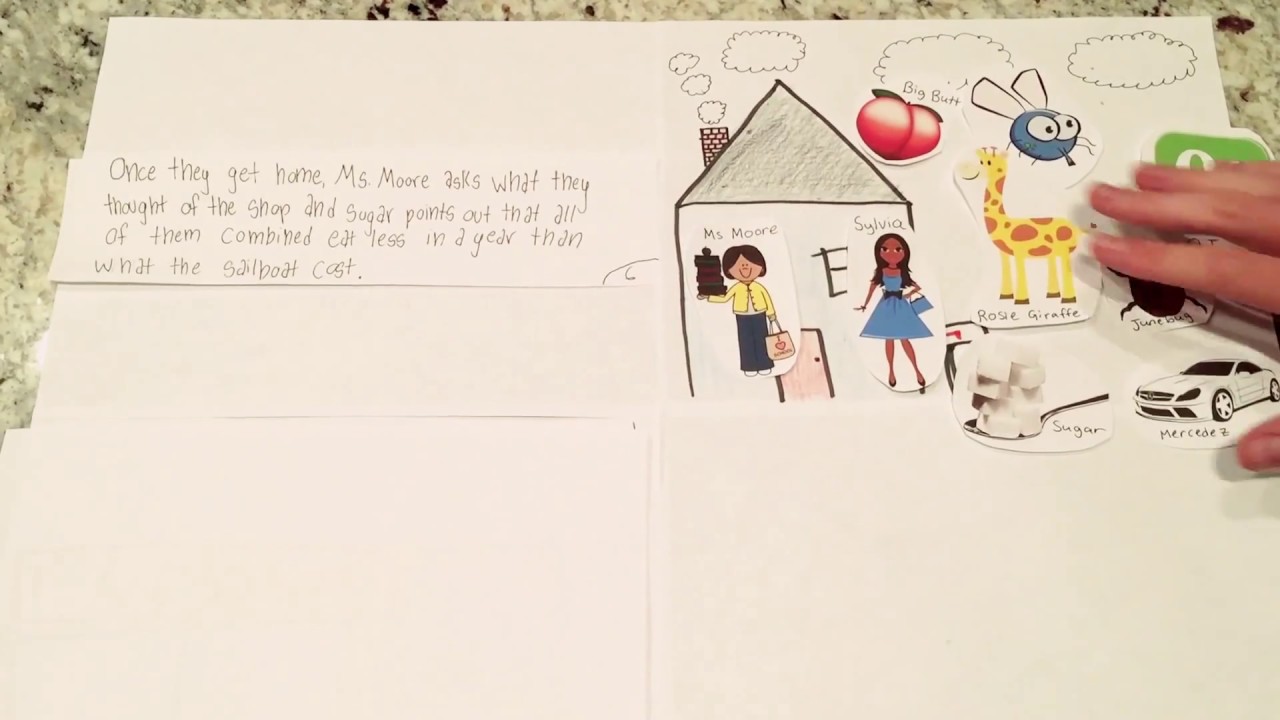 Once they get home, Ms. Moore asks what they
thought of the shop and Sugar points out that all
of them combined eat less in a year than
what the sailboat cost.
6
Big Butt
Ms Moore
Sylvia
Rosie Giraffe
Junebug
Sugar
Mercedez